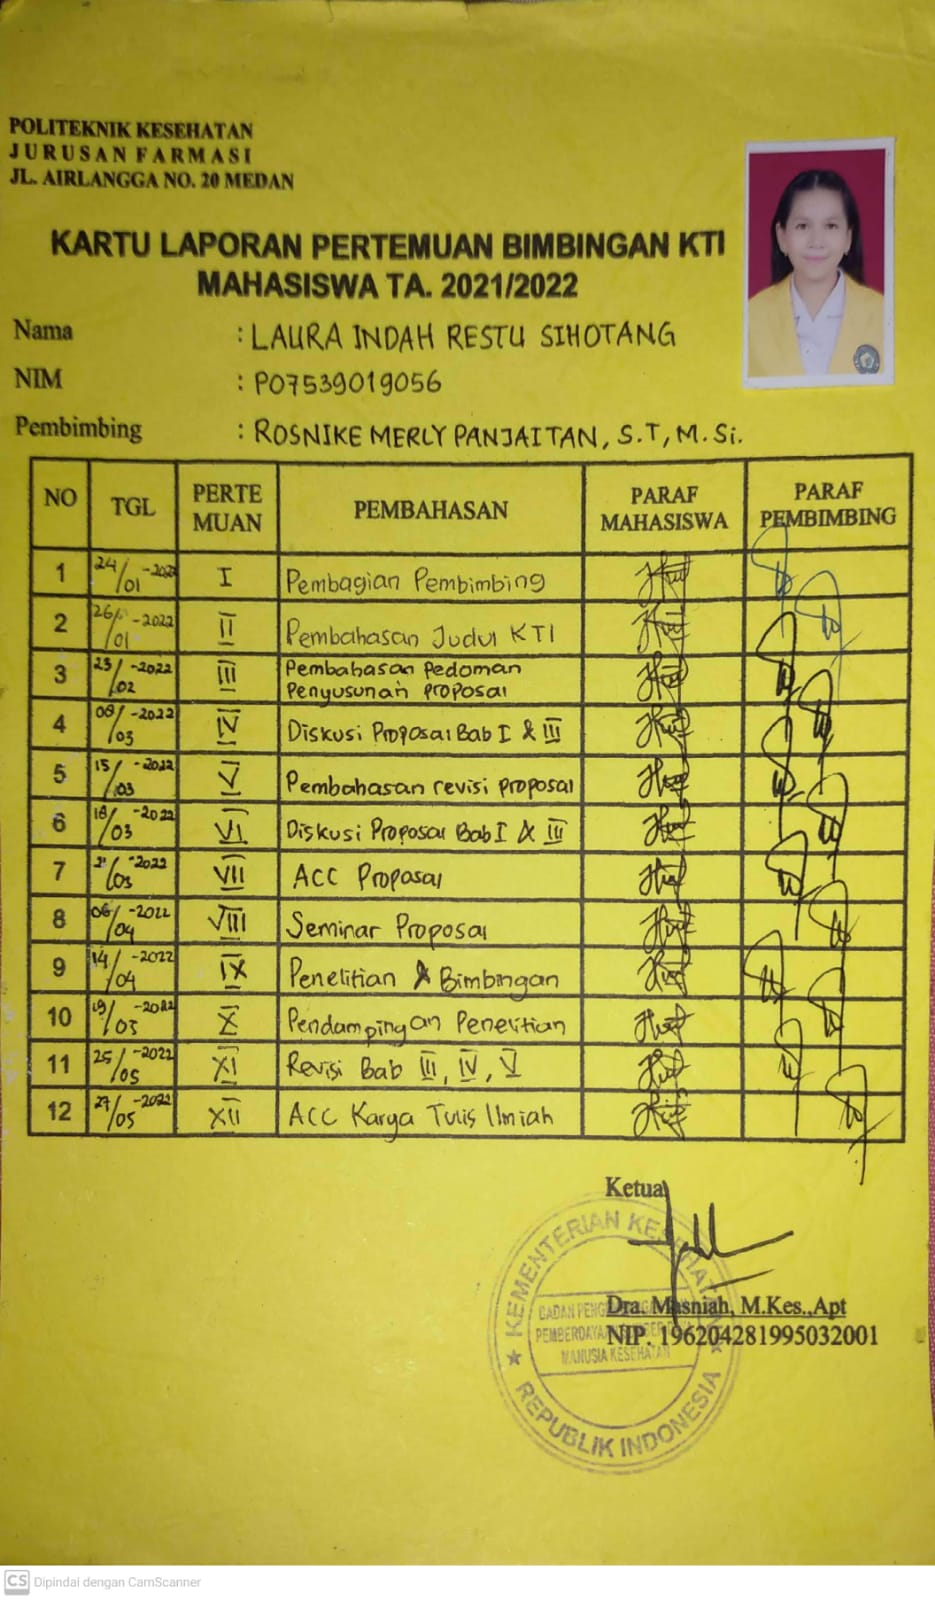 POLITEKNIK KESEHATAN
JURUSAN FARMASI
JL. AIRLANGGA NO. 20 MEDAN
KARTU LAPORAN PERTEMUAN BIMBINGAN KTI
MAHASISWA TA. 2021/2022
Nama : LAURA INDAH RESTU SIHOTANG
NIM : P07539019056
Pembimbing : ROSNIKE MERLY PANJAITAN, S.T, M.Si.
NO TGL PERTE MUAN PEMBAHASAN PARAF MAHASISWA PARAF PEMBIMBING
1 24/01-2022 I Pembagian Pembimbing
2 26/01-2022 II Pembahasan Judul KTI
3 23/02-2022 III Pembahasan Pedoman
Penyusunan proposal
4 08/03-2022 IV Diskusi Proposal Bab I & III
5 15/03-2022 V Pembahasan revisi proposal
6 18/03-2022 VI Diskusi Proposal Bab I & III
7 21/03-2022 VII ACC Proposal
8 06/04-2022 VIII Seminar Proposal
9 14/04-2022 IX Penelitian & Bimbingan
10 19/05-2022 X Pendampingan Penelitian
11 25/05-2022 XI Revisi Bab III, IV, V
12 27/05-2022 XII ACC Karya Tulis Ilmiah
Ketua
Dra. Masniah, M.Kes.,Apt
NIP. 196204281995032001
KEMENTERIAN KESEHATAN
BADAN
PEMBERDAYAAN
MANUSIA KESEHATAN
REPUBLIK INDONESIA
CS Dipindai dengan CamScanner